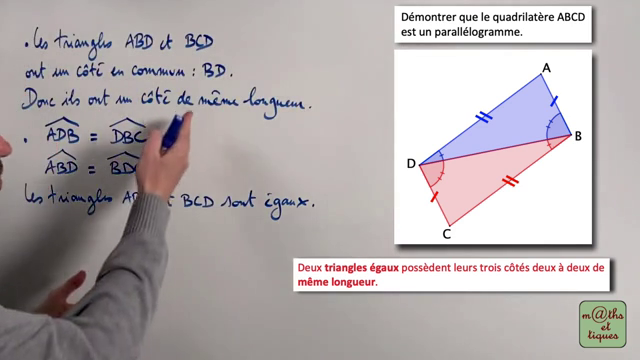 . Les triangles ABD et BCD
ont un côté en commun : BD.
Donc ils ont un côté de même longueur.
. ADB = DBC
ABD = BDC
Les triangles ABD et BCD sont égaux.
Démontrer que le quadrilatère ABCD
est un parallélogramme.
A
B
D
C
Deux triangles égaux possèdent leurs trois côtés deux à deux de
même longueur.
m@ths
et
tiques